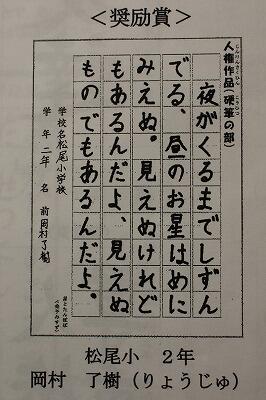 ＜奨励賞＞
人権作品(硬筆の部)
夜がくるまでしずん
でる、昼のお星はめに
みえぬ。見えぬけれど
もあるんだよ、見えぬ
ものでもあるんだよ。
学校名松尾小学校
学年二年 名前岡村了樹
星とたんぽぽ
松尾小 2年
岡村 了樹(りょうじゅ)